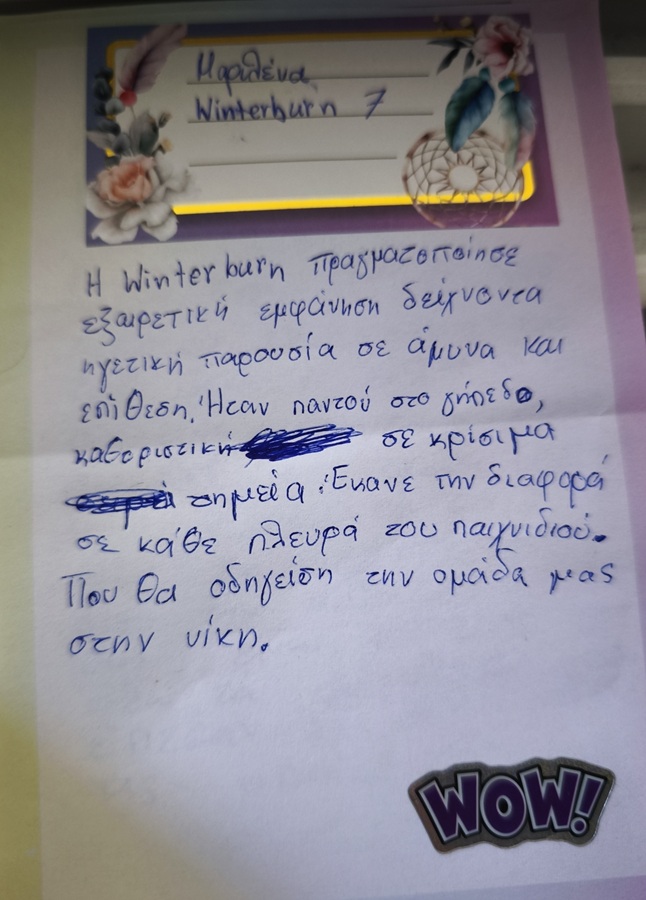 Μαριλένα
Winterburn 7
Η Winterburn πραγματοποίησε
εξαιρετική εμφάνηση δείχνοντα
ηγετική παρουσία σε άμυνα και
επίθεση. Ήταν παντού στο γήπεδο,
καθοριστική σε κρίσιμα
σημεία. Έκανε την διαφορά
σε κάθε πλευρά του παιχνιδιού.
Που θα οδηγείση την ομάδα μας
στην νίκη.
WOW!